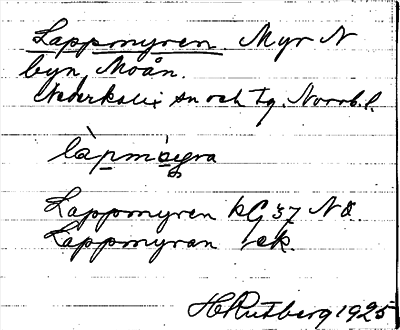 Lappmyren. Myr N
byn Moån.
Nederkalix sn och tg. Norrb. l.
Lappmyren kG 37 NÖ.
Lappmyran ek.
H Rutberg 1925